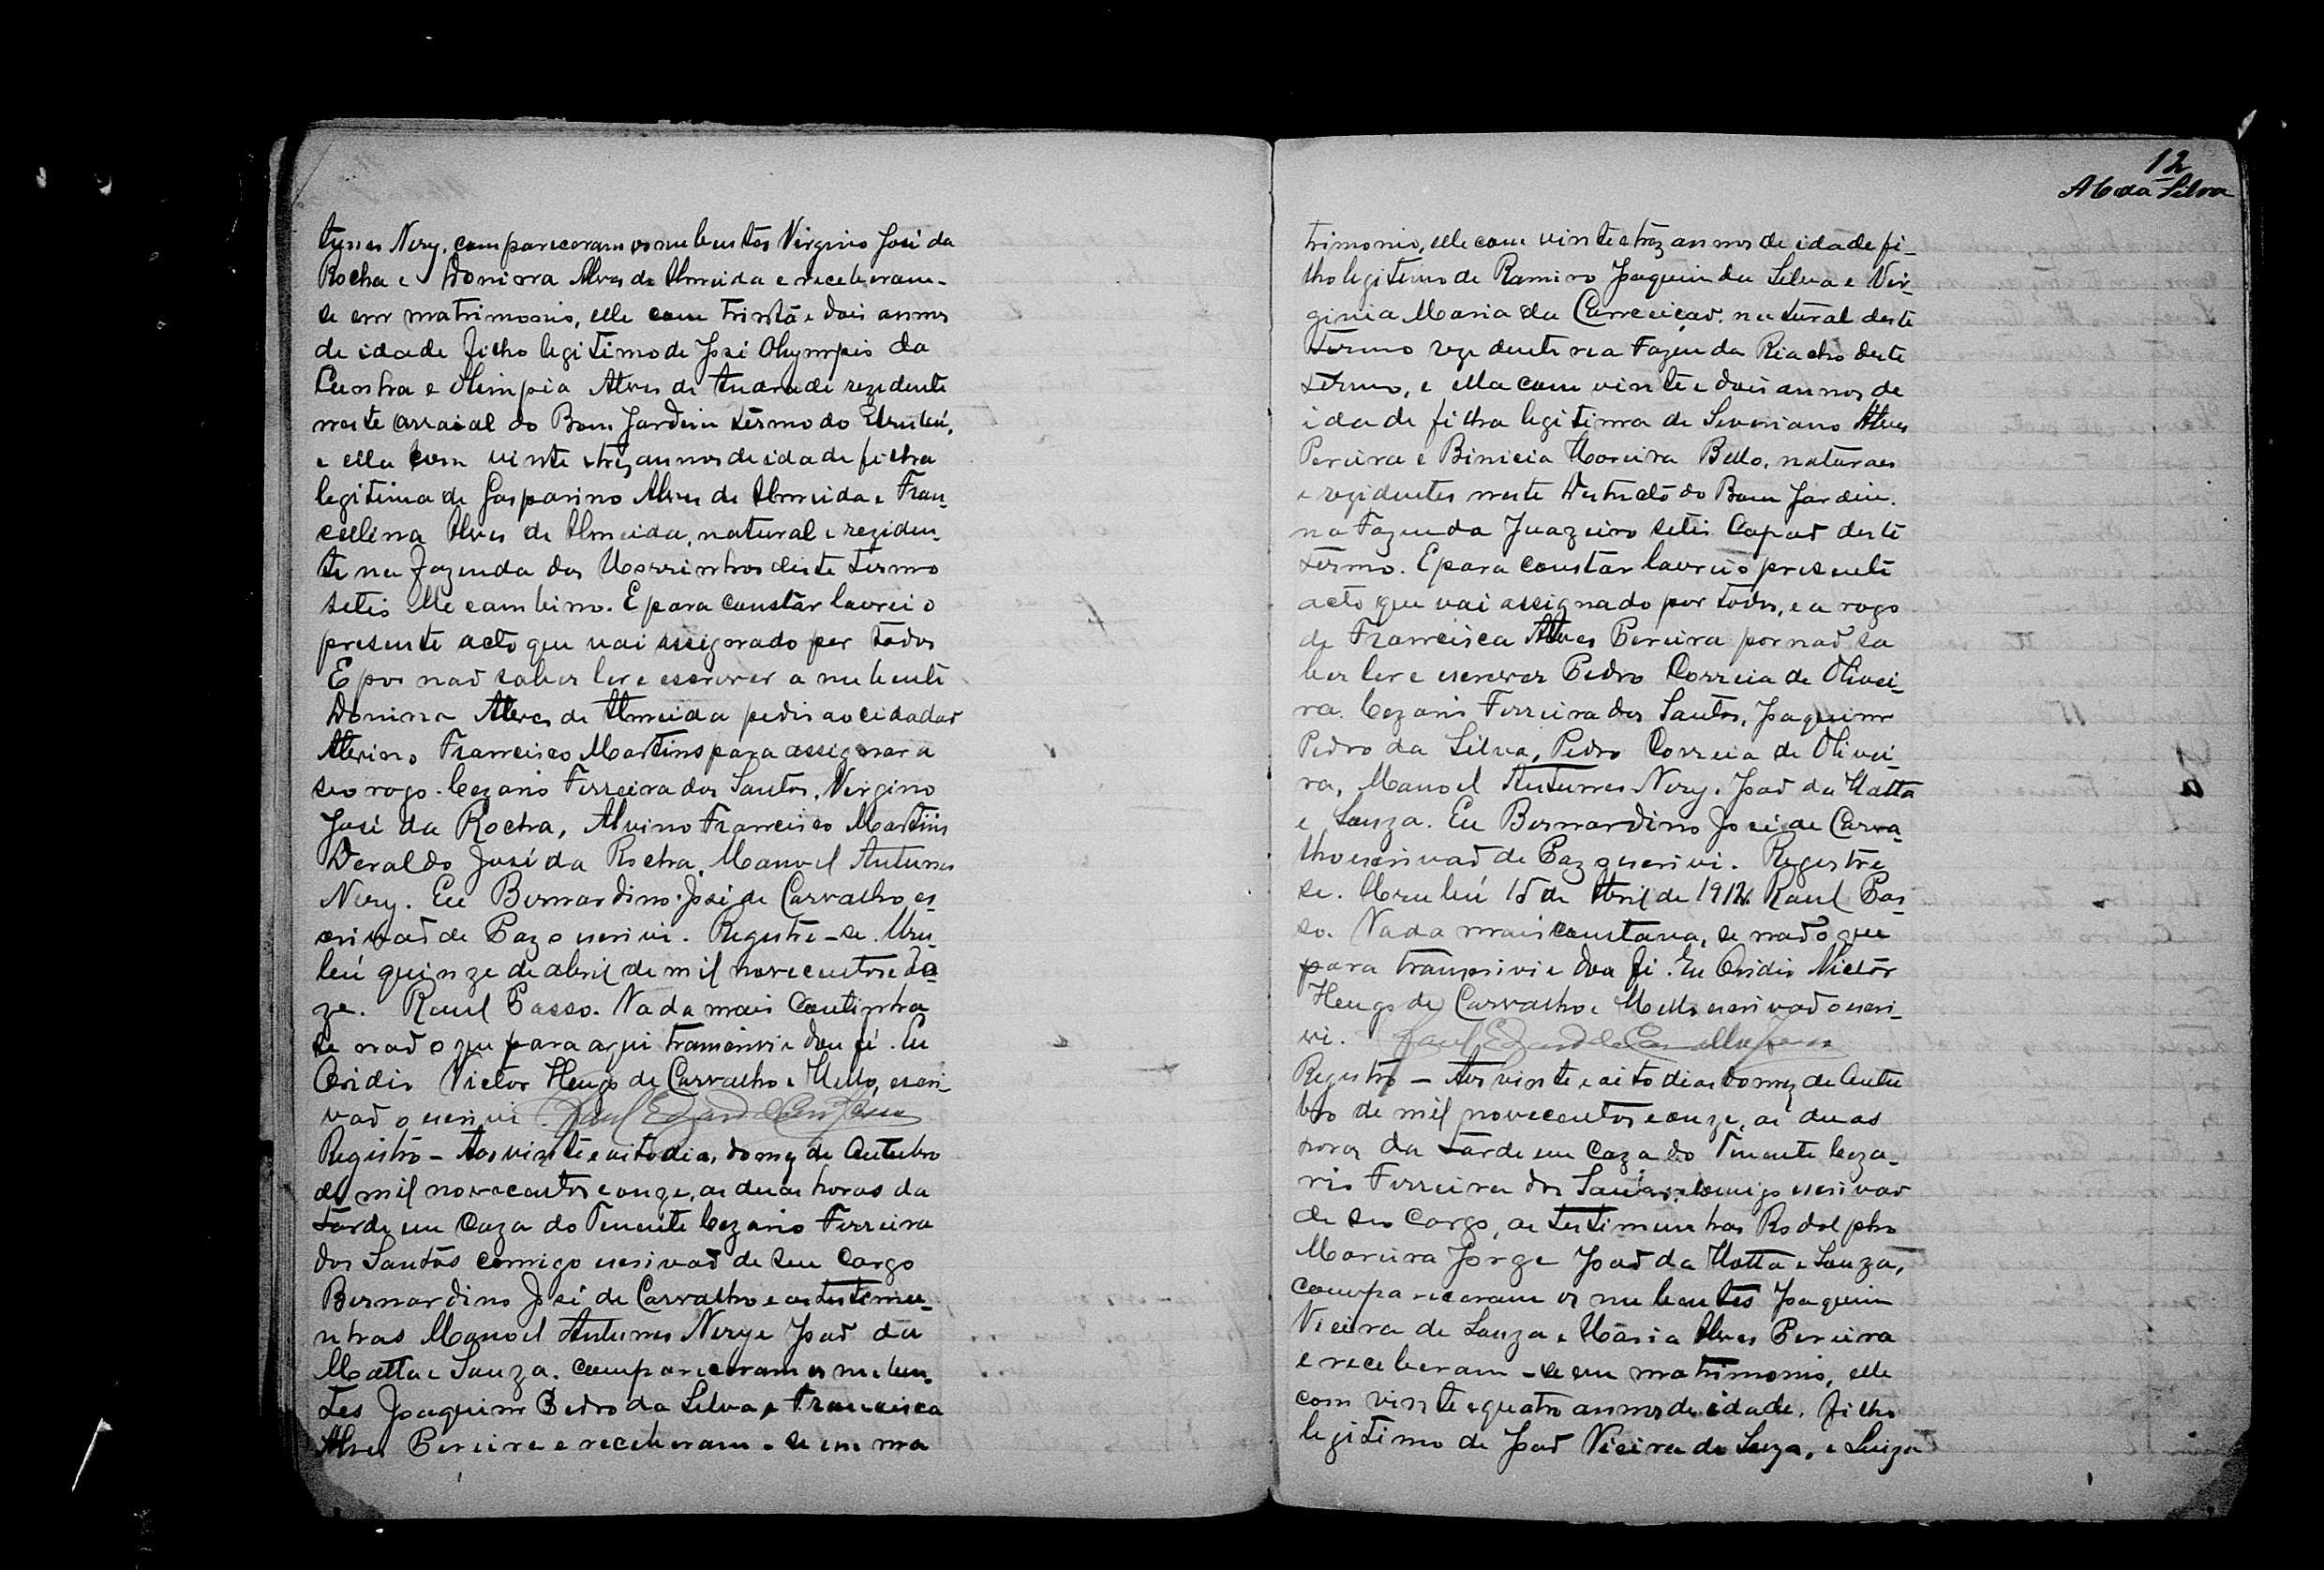 tunes Nery, compareceram os nubentes Virgino José da
Rocha e Donina Alves de Almeida e receberam-
se em matrimonio, elle com trinta e dois annos
de idade filho legitimo de José Olympio da
Cunha e Olimpia Alves de Andrade rezidente
neste arraial do Bom Jardim têrmo do Urubú,
e ella com vinte e trez annos de idade filha
legitima de Gasparino Alves de Almeida e Fran-
cellina Alves de Almeida, natural e reziden-
te na fazenda dos Morrinhos deste termo
E para constar lavrei o
presente acto que vai assignado por todos
E por não saber ler e escrever a nubente
Donina Alves de Almeida pedio ao cidadão
Alvino Francisco Martins para assignar a
seo rogo. Cezario Ferreira dos Santos, Virgino
José da Rocha, Alvino Francisco Martins
Deraldo José da Rocha, Manoel Antunes
Nery. Eu Bernardino José de Carvalho es-
crivão de Paz o escrivi. Registre-se. Uru-
bú quinze de abril de mil novecentos e do-
ze. Raul Passo. Nada mais continha
se não o que para aqui transcrivi e dou fé. Eu
Ovidio Victor Hugo de Carvalho e Mello, escri-
vão o escrivi.
Registro - Aos vinte e oito dias do mez de Outubro
de mil novecentos e onze, as duas horas da
tarde em caza do Tenente Cezario Ferreira
dos Santos comigo escrivão de seu cargo
Bernardino José de Carvalho e as testemu-
nhas Manoel Antunes Nery e João da
Matta e Souza. compareceram os nuben-
tes Joaquim Pedro da Silva e Francisca
Alves Pereira e receberam-se em ma
12
A C da Silva
trimonio, elle com vinte e trez annos de idade fi-
lho legitimo de Ramiro Joaquim da Silva e Vir-
ginia Maria da Conceição. natural deste
termo rezidente na Fazenda Riacho deste
termo, e ella com vinte e dois annos de
idade filha legitima de Severiano Alves
Pereira e Binicia Moreira Bello, naturaes
e rezidentes neste Destricto do Bom Jardim.
na Fazenda Juazeiro deste
termo. E para constar lavrei o presente
acto que vai assignado por todos, e a rogo
de Francisca Alves Pereira por não sa
ber ler e escrever Pedro Correia de Olivei-
ra. Cezario Ferreira dos Santos, Joaquim
Pedro da Silva, Pedro Correia de Olivei-
ra, Manoel Antunes Nery. João da Matta
e Souza. Eu Bernardino José de Carva-
lho escrivão de Paz o escrivi. Registre
se. Urubú 15 de Abril de 1912. Raul Pas-
so. Nada mais constava, se não o que
para transcrivi e dou fé. Eu Ovidio Victor
Hugo de Carvalho e Mello escrivão o escri-
vi.
Registro - Aos vinte e oito dias do mez de Outu
bro de mil novecentos e onze, as duas
horas da tarde em caza do Tenente Ceza-
rio Ferreira dos Santos, comigo escrivão
de seo cargo, as testimunhas Rodolpho
Moreira Jorge João da Matta e Souza,
compareceram os nubentes Joaquim
Vieira de Souza e Maria Alves Pereira
e receberam-se em matrimonio, elle
com vinte e quatro annos de idade. filho
legitimo de João Vieira de Souza, e Luiza